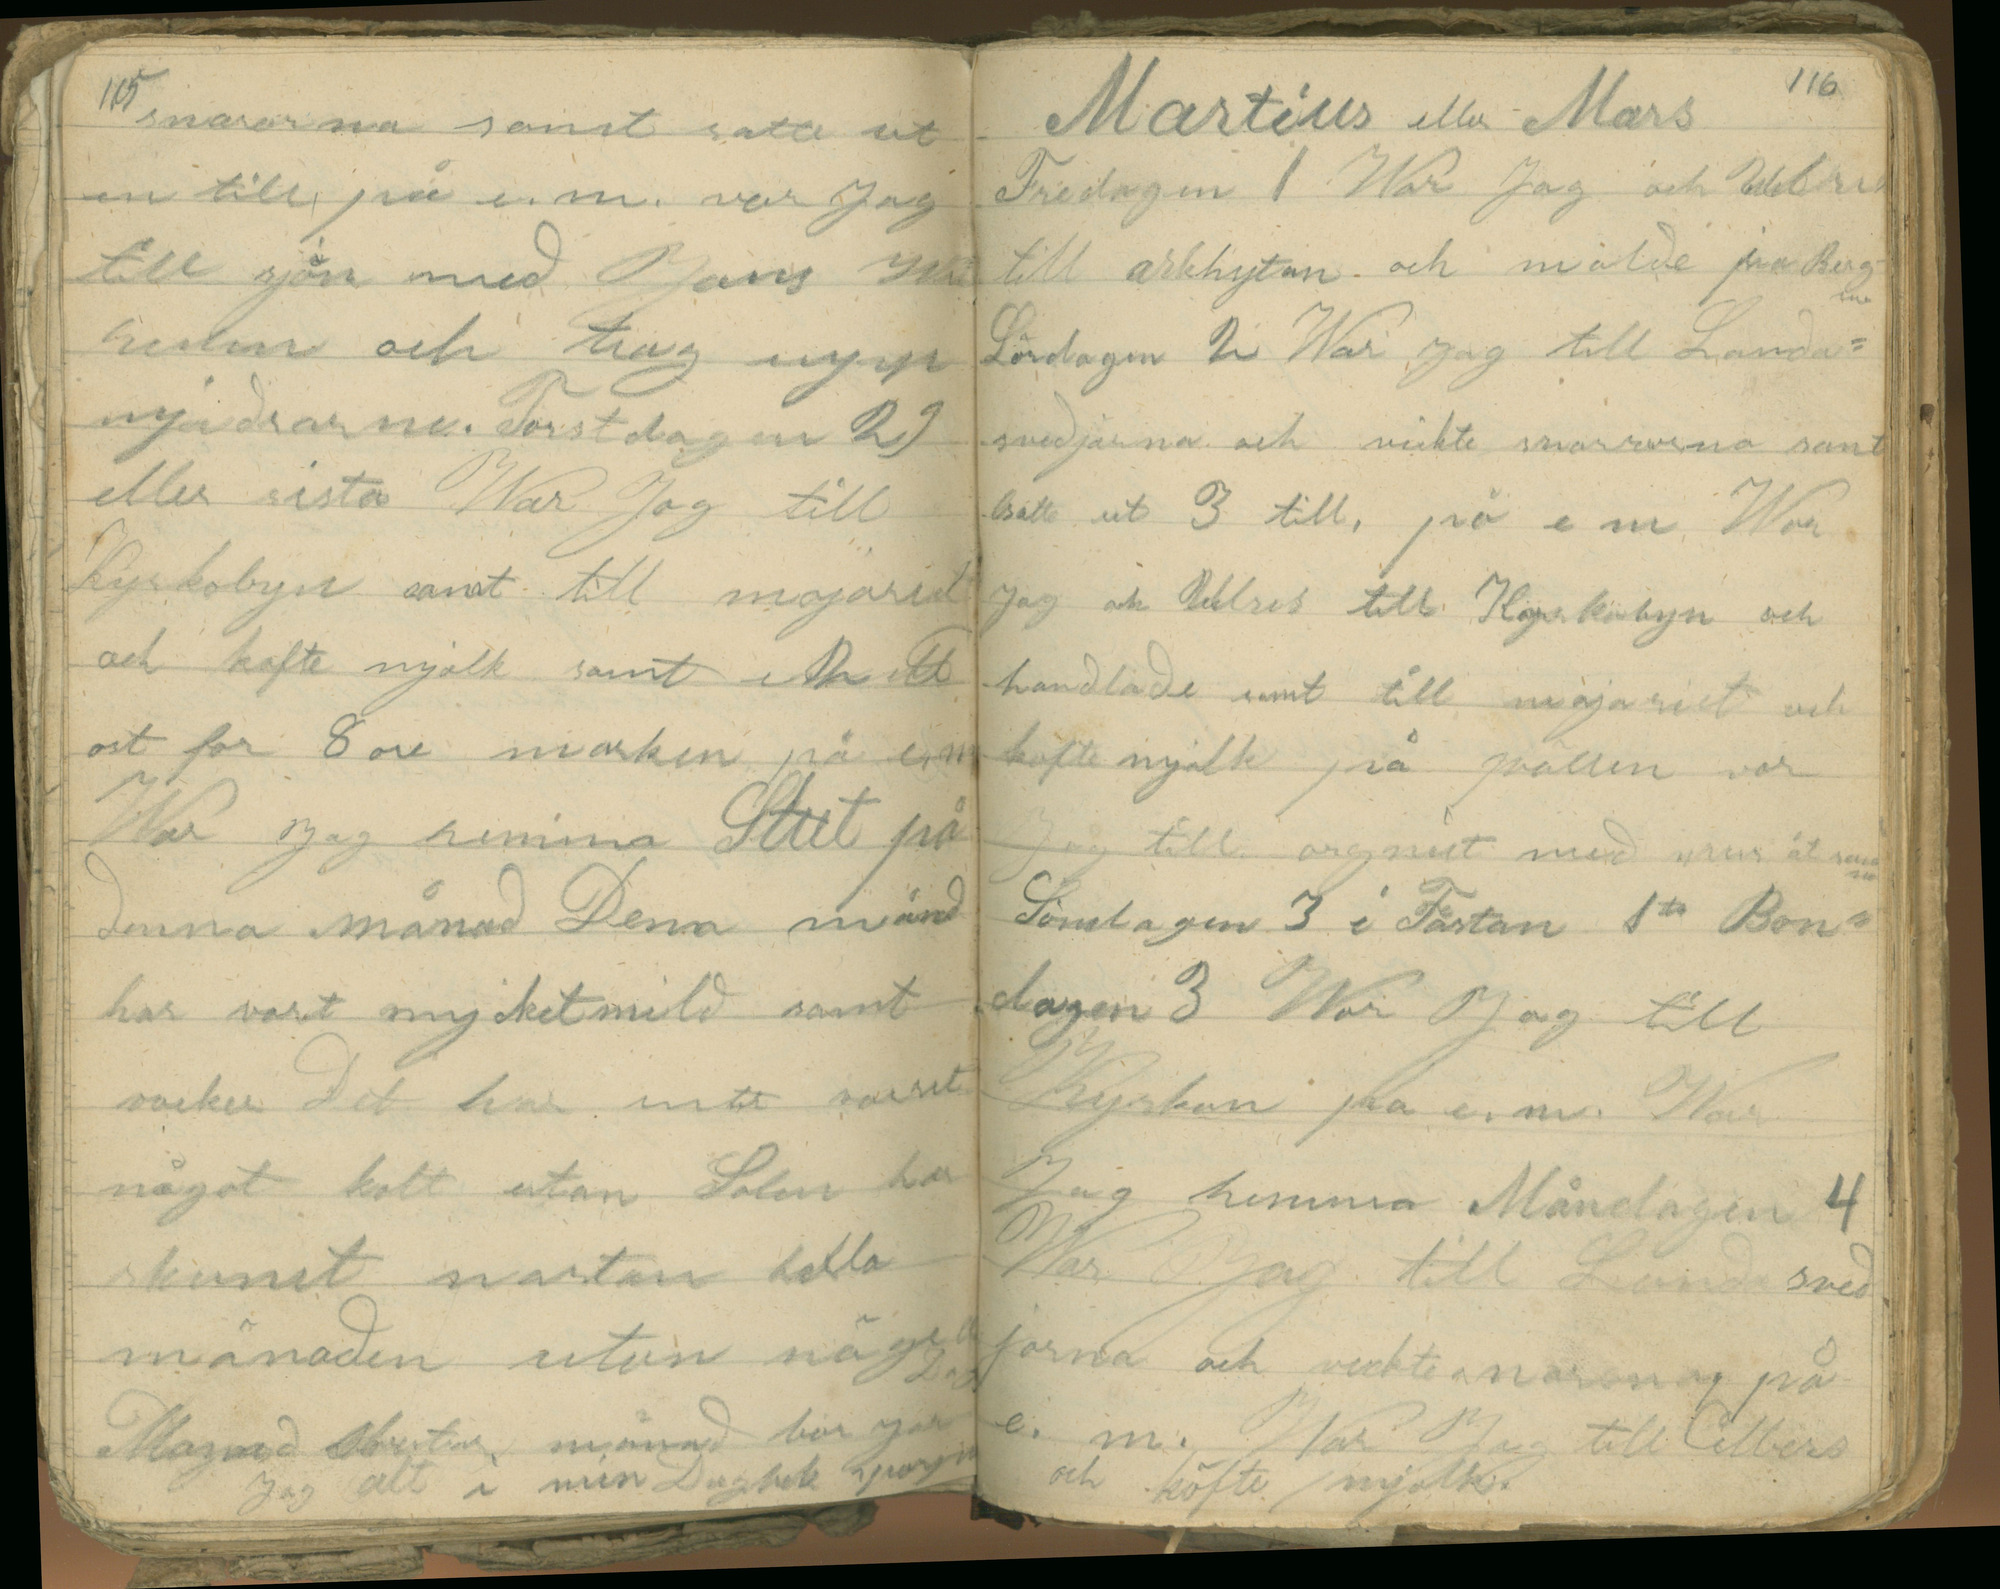 115
snarorna samt satte ut
en till, på e. m. var Jag
till sjön med Jans
hemm och trog upp
njädrarne. Torstdagen 29
eller sista War Jag till
Kyrkobyn samt till mojariet
och kofte mjolk samt ett
ost for 8 ore marken på e, m
War Jag hemma Slut på
denna månad Dena månd
har vart mycket mild samt
vacker Det har inte varret
något kalt utan Solen har
skunet nastan hella
månaden utom någr
Dag
månad har jar
Jag alt i min Dagbok
116
Martius eller Mars
Fredagen 1 War Jag och
till arkhytan och målde pra Berg
Lördagen 2 War Jag till Landa=
svedjarna och vickte snarrorna samt
satte ut 3 till, på e m War
Jag ok till Kyrkobyn och
handlade samt till mojariet och
kofte mjolk på qvällen var
Jag till med åt
Söndagen 3 i Fastan 1ta Bon=
dagen 3 War Jag till
Kyrkan pra e. m. War
Jag hemma Måndagen 4
War Jag till Landa sved
jarna och vickte på
e. m. War Jag till Albers
och köfte mjolk.